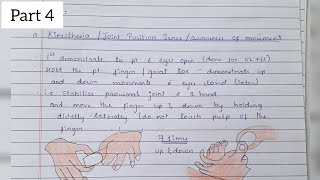 Part 4
a Kinesthesia / Joint Position Sense / awareness of movement
1st demonstrate to pt c eyes open (done for UL & LL)
Hold the pt finger / great toe - demonstrate up
and down movements c eyes closed
i.e Stabilise proximal joint c 1 hand
and move the finger up & down by holding
distally - laterally (do not touch pulp of the
finger
7 times
up & down